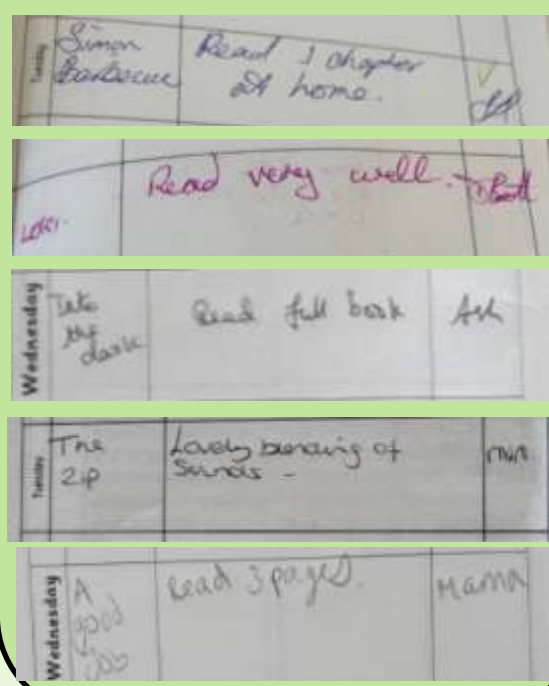 Tuesday
Simon
Barbecue
Read 1 chapter
at home.
Read very well.
Wednesday
Into
the
dark
Read full book
Tuesday
The
zip
Lovely blending of
sounds -
mum
Wednesday
A
good
job
Read 3 pages.
Mama